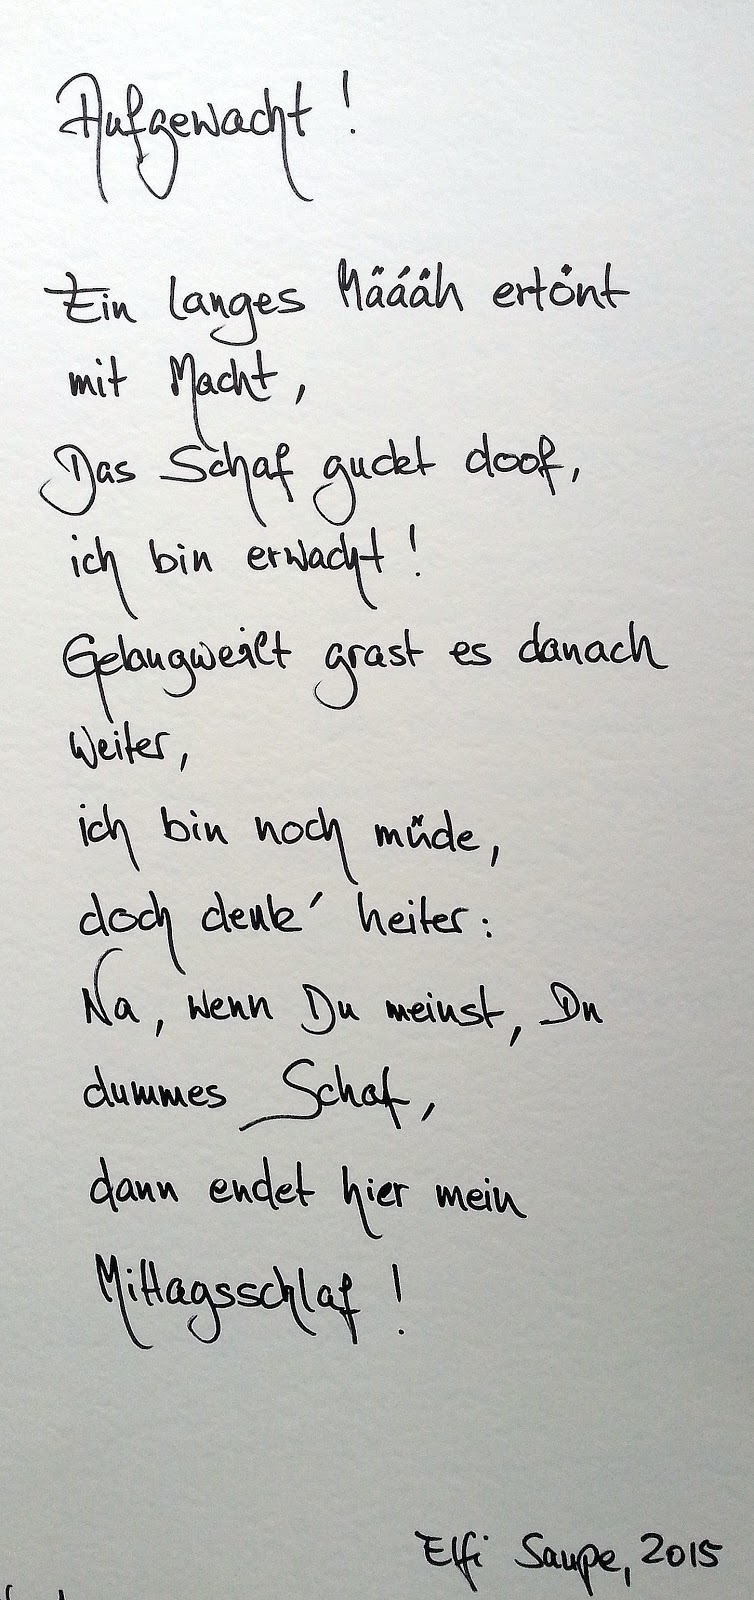 Aufgewacht!
Ein langes Määäh ertönt
mit Macht,
Das Schaf guckt doof,
ich bin erwacht!
Gelangweilt grast es danach
weiter,
ich bin noch müde,
doch denk' heiter:
Na, wenn Du meinst, Du
dummes Schaf,
dann endet hier mein
Mittagsschlaf!
Elfi Saupe, 2015